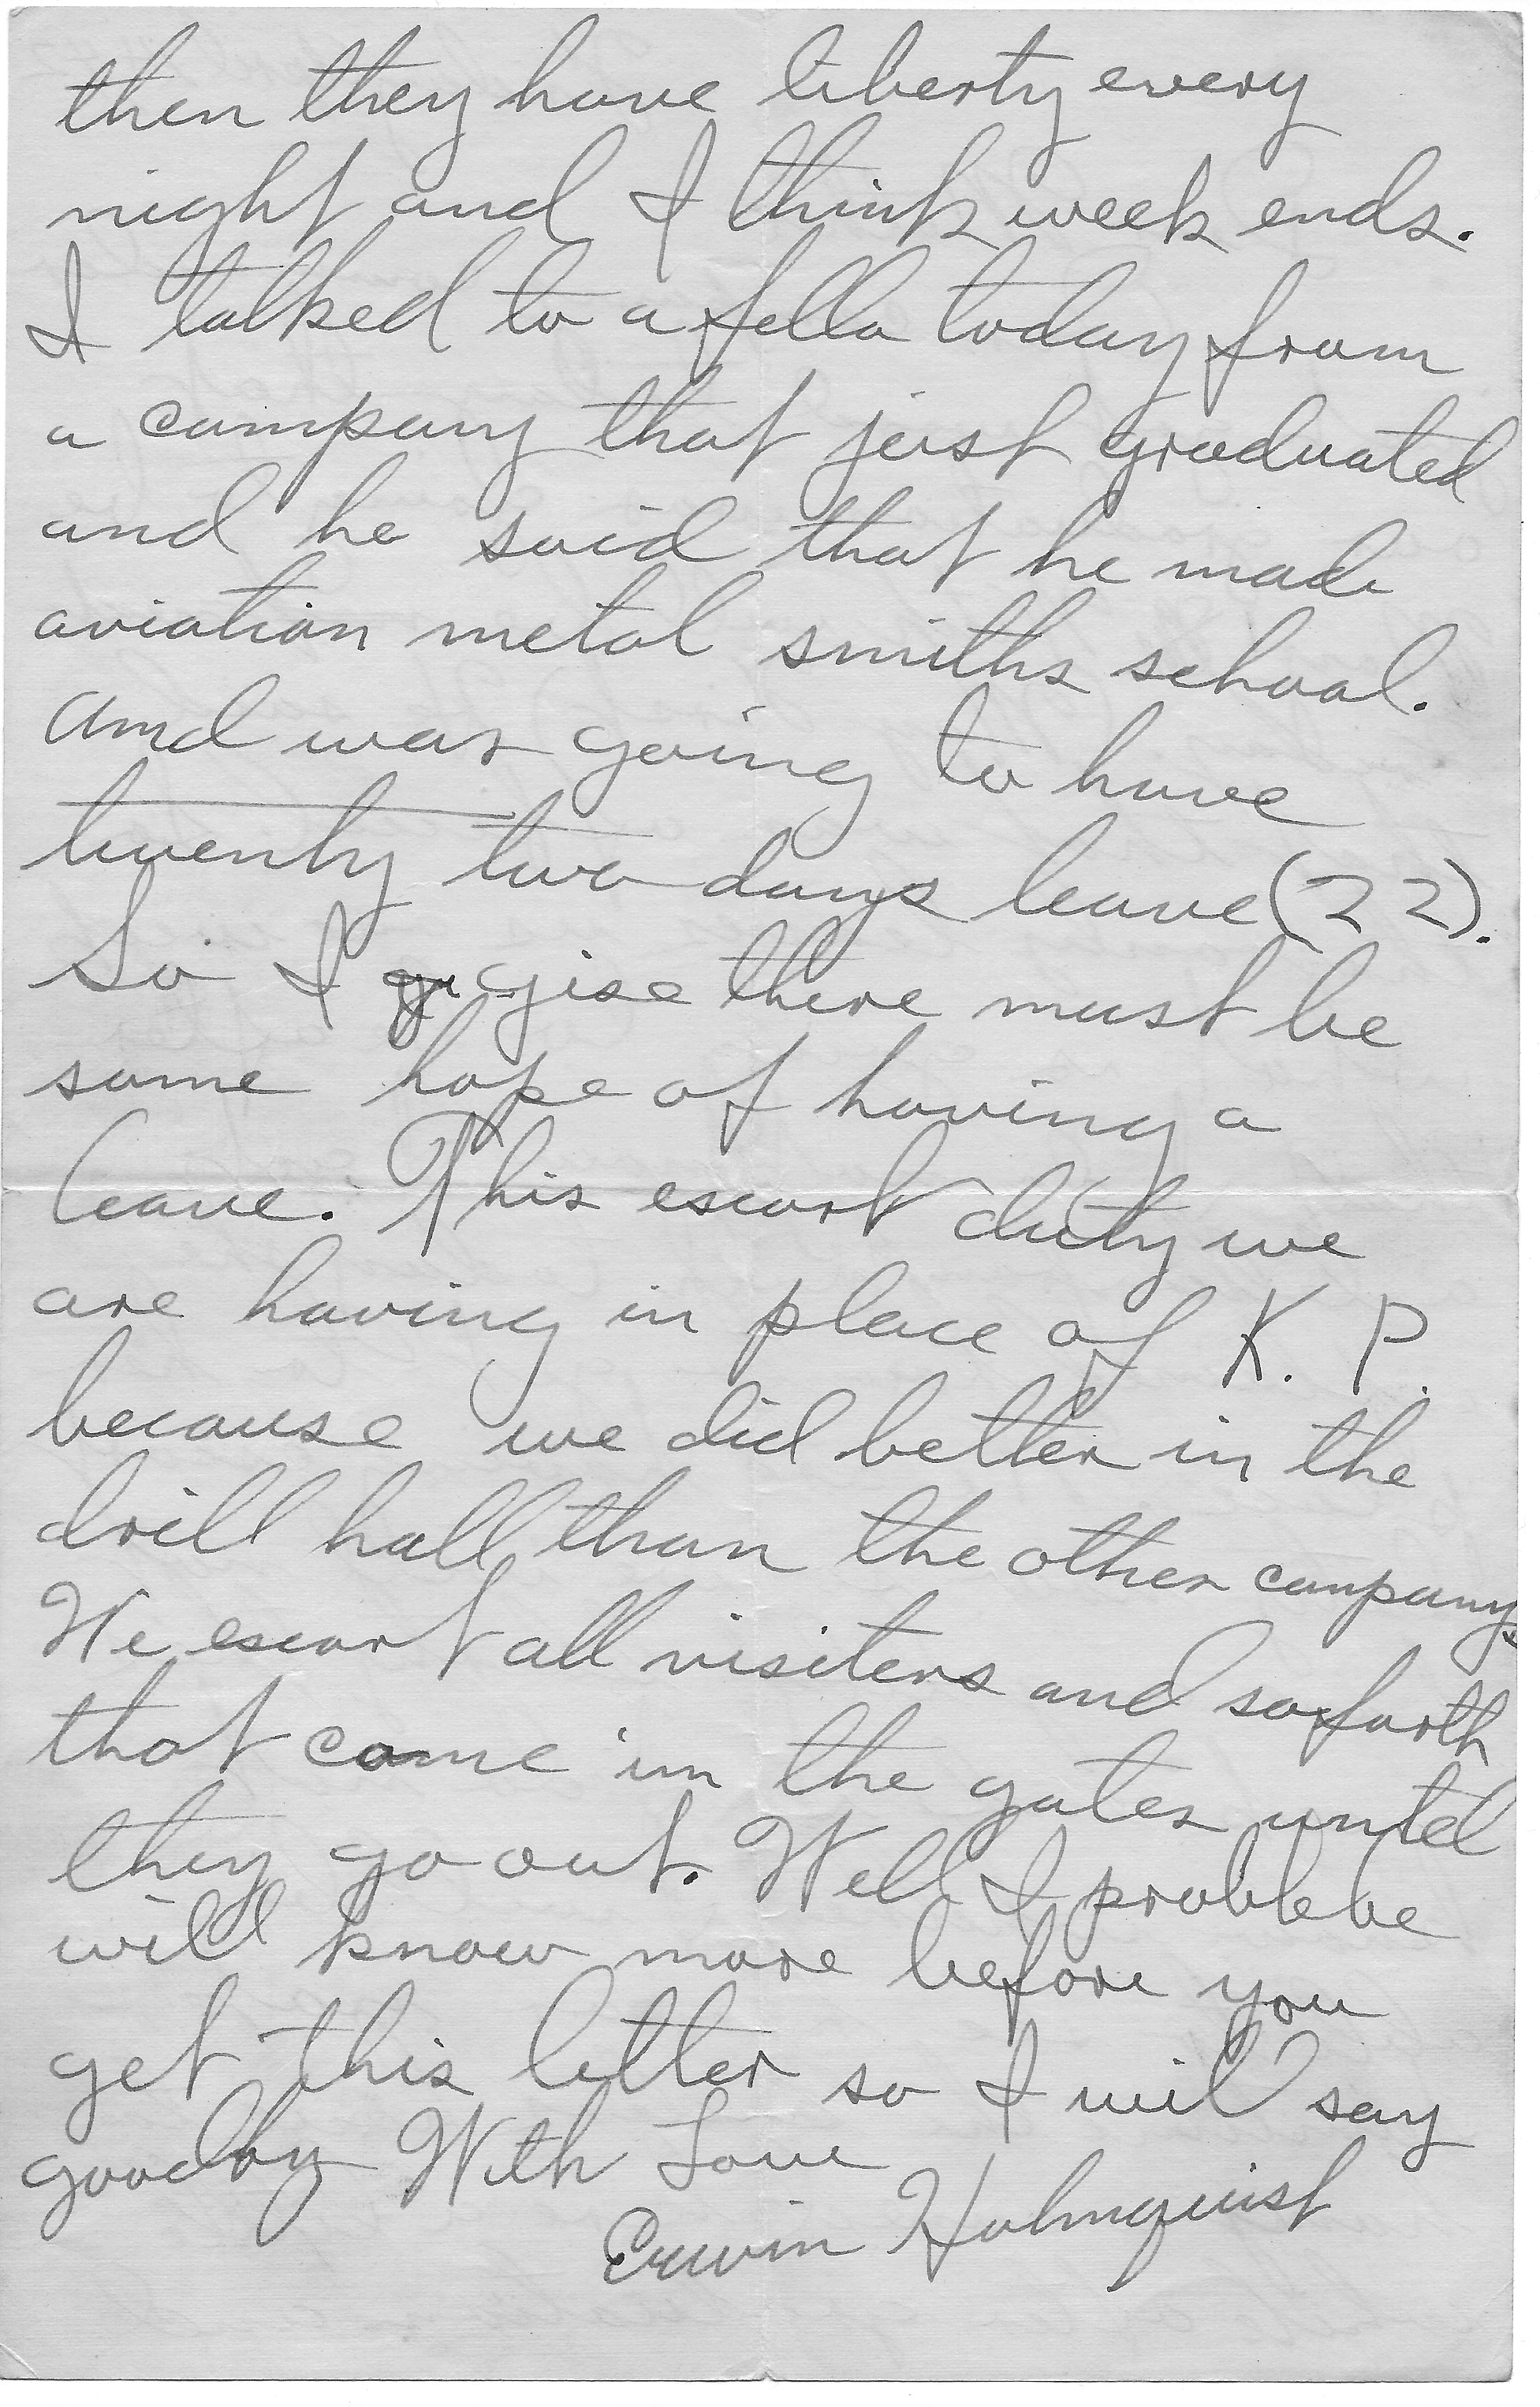 then they have liberty every
night and I think week ends.
I talked to a fella today from
a company that just graduated
and he said that he made
aviation metal smiths school.
and was going to have
twenty two days leave (22).
So I gise there must be
some hope of having a
leave. This escort duty we
are having in place of K. P.
because we did better in the
drill hall than the other companys
We escort all visiters and soforth
that come in the gates until
they go out. Well I probbebe
will know more before you
get this letter so I will say
goodby With Love
Erwin Holmquist